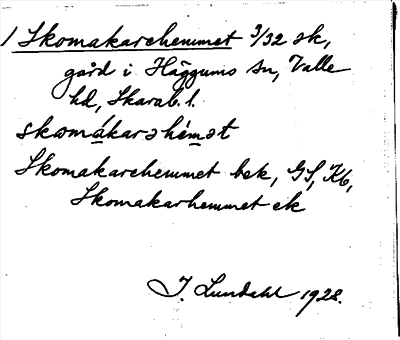 1 Skomakarehemmet 3/32 sk,
gård i Häggums sn, Valle
hd, Skarab. l.
skomákarəhémət
Skomakarehemmet bek, GS, Kb,
Skomakarhemmet ek
J. Lundahl 1928.